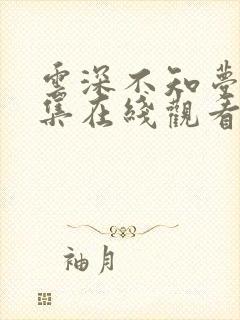 雲深不知夢
集在綫觀看
袖月